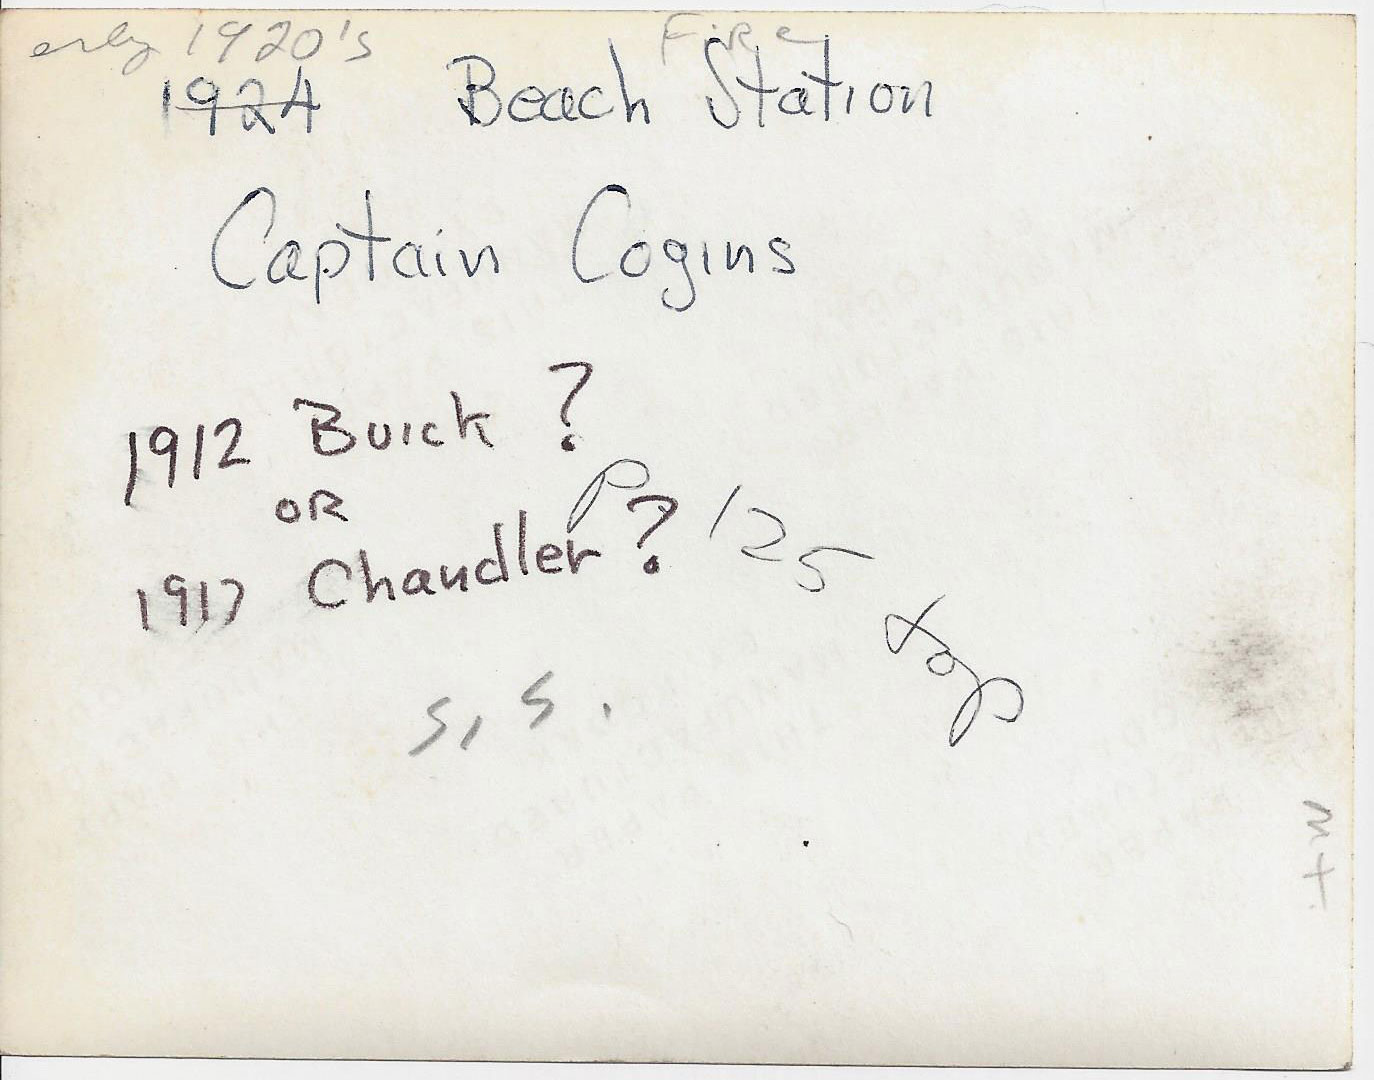 erly 1920's Fire
1924 Beach Station
Captain Cogins
1912 Buick ?
OR
1917 Chandler ?
P 125 top
S, S.